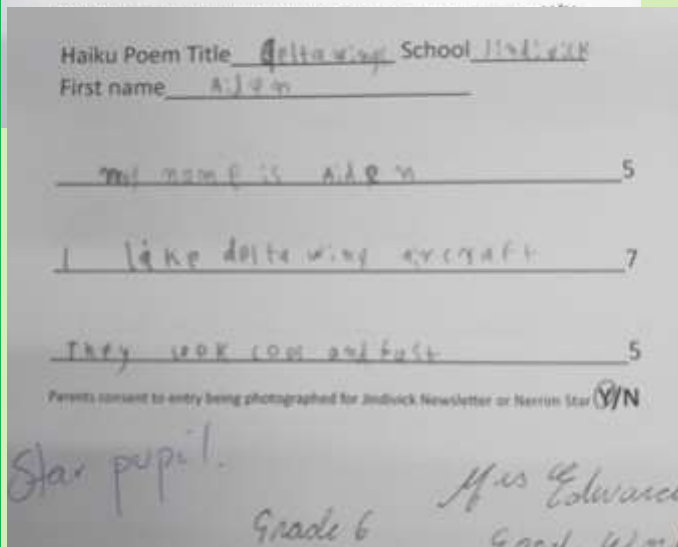 Haiku Poem Title delta wing School Jindivick
First name Aiden
my name is Aiden 5
I like delta wing arcraft 7
They look cool and fast 5
Parents consent to entry being photographed for Jindivick Newsletter or Nerrim Star Y/N
Star pupil.
Mrs Edward
Grade 6
Good